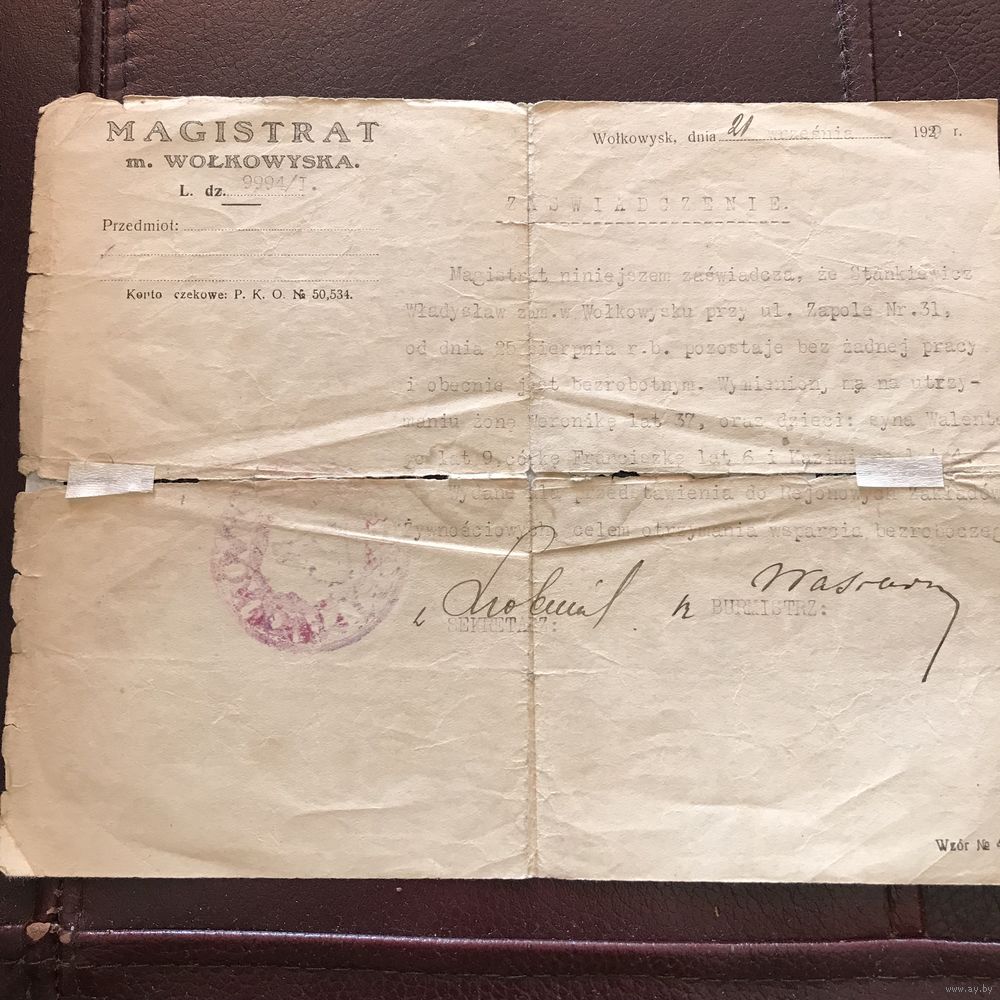 MAGISTRAT
m. WOŁKOWYSKA.
L. dz. 9994/I.
Przedmiot:
Konto czekowe: P. K. O. № 50,534.
Wołkowysk, dnia 21 września 1929 r.
ZAŚWIADCZENIE.
Magistrat niniejszem zaświadcza, że Stankiewicz
Władysław zam.w Wołkowysku przy ul. Zapole Nr.31,
od dnia 25 sierpnia r.b. pozostaje bez żadnej pracy
i obecnie jest bezrobotnym. Wymienion, ma na utrzy-
maniu żonę Weronikę lat 37, oraz dzieci: syna Walent
go lat 9 córkę Franciszkę lat 6 i
Wydane dla przedstawienia do Rejonowych Zakładów
Żywnościowych celem otrzymania wsparcia bezrobocze
SEKRETARZ:
BURMISTRZ:
Wzór № 4
www.ay.by